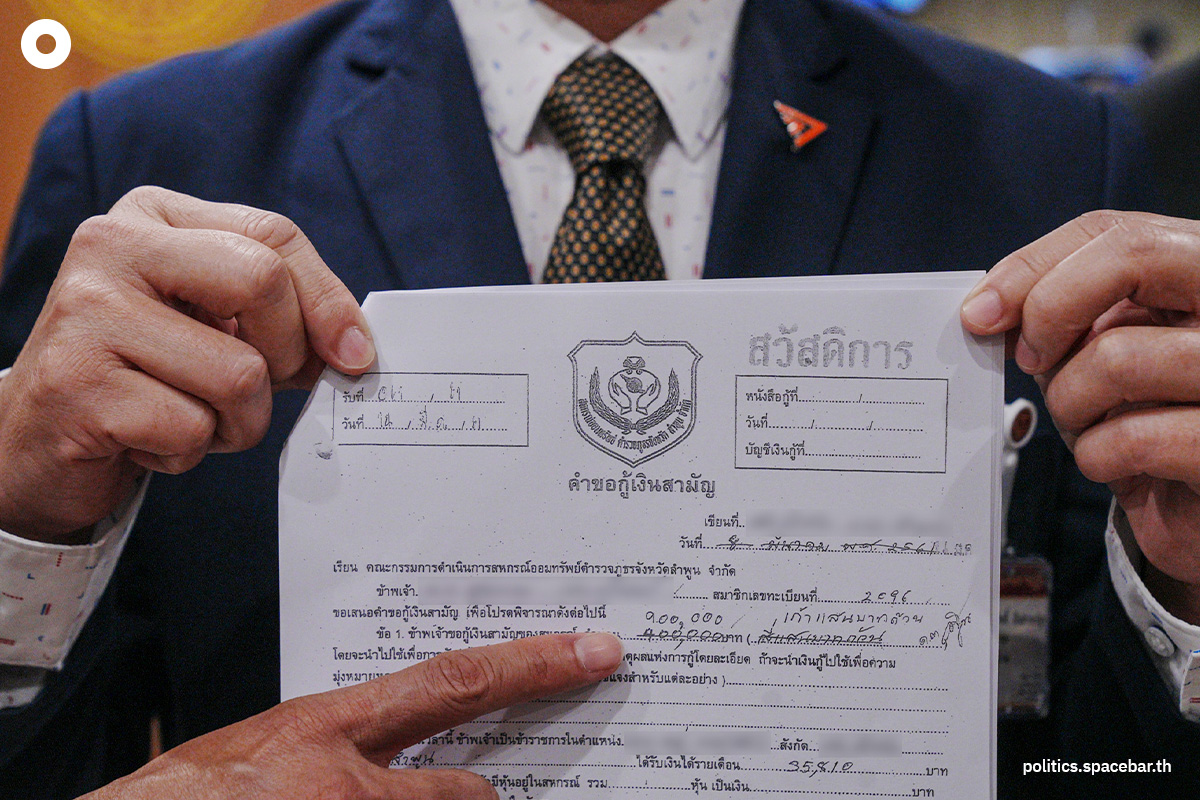 สวัสดิการ
รับที่ / 
วันที่
หนังสือกู้ที่ / 
วันที่ / /
บัญชีเงินกู้ที่
คำขอกู้เงินสามัญ
เขียนที่
วันที่ 8 มีนาคม พ.ศ.
เรียน คณะกรรมการดำเนินการสหกรณ์ออมทรัพย์ตำรวจภูธรจังหวัดลำพูน จำกัด
ข้าพเจ้า สมาชิกเลขทะเบียนที่ 2096
ขอเสนอคำขอกู้เงินสามัญ เพื่อโปรดพิจารณาดังต่อไปนี้ ๙๐๐,๐๐๐ เก้าแสนบาทถ้วน
ข้อ 1. ข้าพเจ้าขอกู้เงินสามัญของสหกรณ์ ๔๐๐,๐๐๐ บาท (สี่แสนบาทถ้วน
โดยจะนำไปใช้เพื่อการ เหตุผลแห่งการกู้โดยละเอียด ถ้าจะนำเงินกู้ไปใช้เพื่อความ
มุ่งหมาย ชี้แจงสำหรับแต่ละอย่าง )
เวลานี้ ข้าพเจ้าเป็นข้าราชการในตำแหน่ง สังกัด
ลำพูน ได้รับเงินได้รายเดือน 35,810 บาท
มีหุ้นอยู่ในสหกรณ์ รวม หุ้น เป็นเงิน บาท
politics.spacebar.th